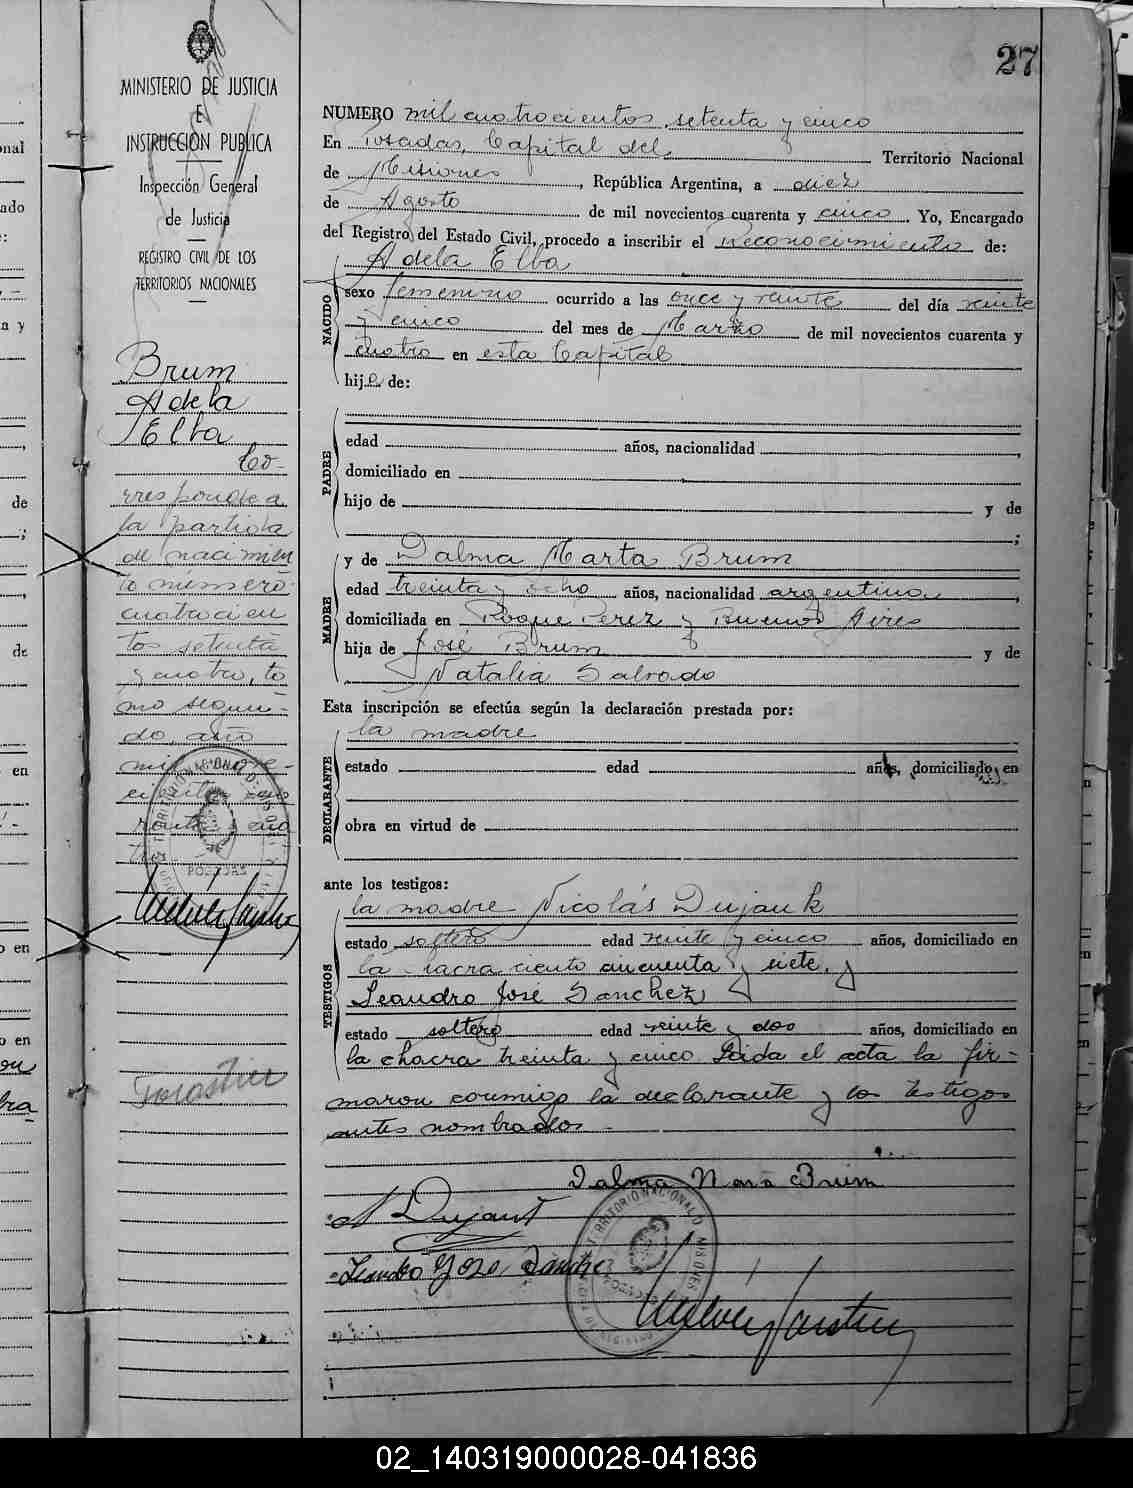 27
MINISTERIO DE JUSTICIA
E
INSTRUCCIÓN PUBLICA
Inspección General
de Justicia
REGISTRO CIVIL DE LOS
TERRITORIOS NACIONALES
Brum
Adela
Elba
Co-
rresponde a
la partida
de nacimien
to número
cuatrocien
tos setenta
y cuatro, to
mo segun-
do, año
mil nove-
cientos cua
renta y cua
tro
NUMERO mil cuatrocientos setenta y cinco
En Posadas, Capital del Territorio Nacional
de Misiones, República Argentina, a diez
de Agosto de mil novecientos cuarenta y cinco. Yo, Encargado
del Registro del Estado Civil, procedo a inscribir el Reconocimiento de:
Adela Elba
NACIDO
sexo femenino ocurrido a las once y veinte del día veinte
y cinco del mes de Marzo de mil novecientos cuarenta y
cuatro en esta Capital
hija de:
PADRE
edad años, nacionalidad ,
domiciliado en
hijo de y de
;
MADRE
y de Dalma Marta Brum
edad treinta y ocho años, nacionalidad argentina,
domiciliada en Roque Perez y Buenos Aires
hija de José Brum y de
Natalia Salvado
Esta inscripción se efectúa según la declaración prestada por:
la madre
DECLARANTE
estado edad años, domiciliado en
obra en virtud de
ante los testigos:
la madre Nicolás Dujauk
TESTIGOS
estado soltero edad veinte y cinco años, domiciliado en
la chacra ciento cincuenta y siete, y
Leandro José Sanchez
estado soltero edad veinte y dos años, domiciliado en
la chacra treinta y cinco Leida el acta la fir-
maron conmigo la declarante y los testigos
antes nombrados.
Dalma Brum
N Dujauk
Leandro Jose Sánchez
02_140319000028-041836